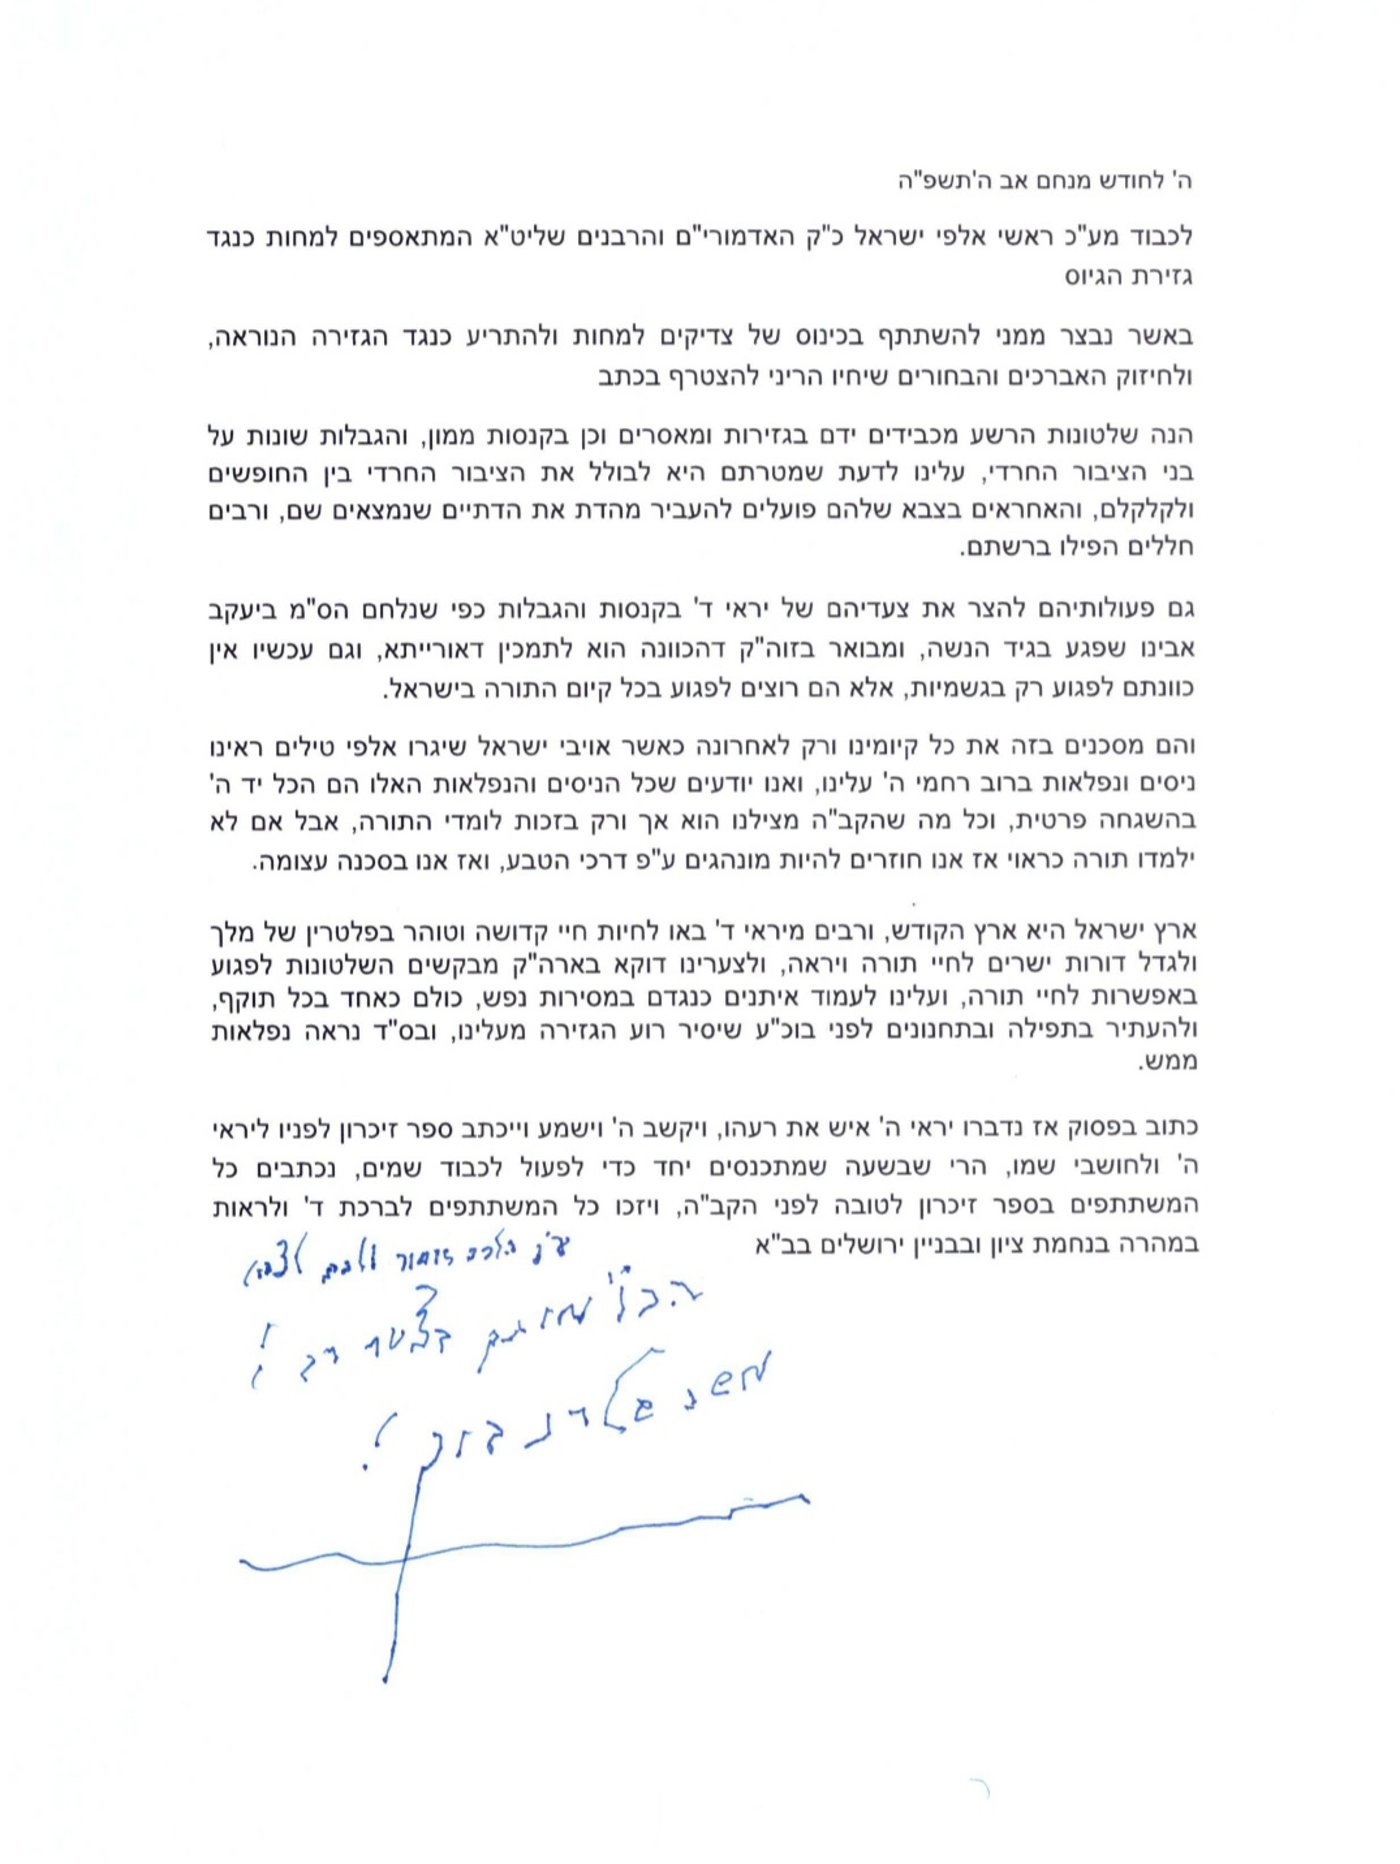 ה' לחודש מנחם אב ה'תשפ"ה
לכבוד מע"כ ראשי אלפי ישראל כ"ק האדמורי"ם והרבנים שליט"א המתאספים למחות כנגד
גזירת הגיוס
באשר נבצר ממני להשתתף בכינוס של צדיקים למחות ולהתריע כנגד הגזירה הנוראה,
ולחיזוק האברכים והבחורים שיחיו הריני להצטרף בכתב
הנה שלטונות הרשע מכבידים ידם בגזירות ומאסרים וכן בקנסות ממון, והגבלות שונות על
בני הציבור החרדי, עלינו לדעת שמטרתם היא לבולל את הציבור החרדי בין החופשים
ולקלקלם, והאחראים בצבא שלהם פועלים להעביר מהדת את הדתיים שנמצאים שם, ורבים
חללים הפילו ברשתם.
גם פעולותיהם להצר את צעדיהם של יראי ד' בקנסות והגבלות כפי שנלחם הס"מ ביעקב
אבינו שפגע בגיד הנשה, ומבואר בזוה"ק דהכוונה הוא לתמכין דאורייתא, וגם עכשיו אין
כוונתם לפגוע רק בגשמיות, אלא הם רוצים לפגוע בכל קיום התורה בישראל.
והם מסכנים בזה את כל קיומינו ורק לאחרונה כאשר אויבי ישראל שיגרו אלפי טילים ראינו
ניסים ונפלאות ברוב רחמי ה' עלינו, ואנו יודעים שכל הניסים והנפלאות האלו הם הכל יד ה'
בהשגחה פרטית, וכל מה שהקב"ה מצילנו הוא אך ורק בזכות לומדי התורה, אבל אם לא
ילמדו תורה כראוי אז אנו חוזרים להיות מונהגים ע"פ דרכי הטבע, ואז אנו בסכנה עצומה.
ארץ ישראל היא ארץ הקודש, ורבים מיראי ד' באו לחיות חיי קדושה וטוהר בפלטרין של מלך
ולגדל דורות ישרים לחיי תורה ויראה, ולצערינו דוקא בארה"ק מבקשים השלטונות לפגוע
באפשרות לחיי תורה, ועלינו לעמוד איתנים כנגדם במסירות נפש, כולם כאחד בכל תוקף,
ולהעתיר בתפילה ובתחנונים לפני בוכ"ע שיסיר רוע הגזירה מעלינו, ובס"ד נראה נפלאות
ממש.
כתוב בפסוק אז נדברו יראי ה' איש את רעהו, ויקשב ה' וישמע וייכתב ספר זיכרון לפניו ליראי
ה' ולחושבי שמו, הרי שבשעה שמתכנסים יחד כדי לפעול לכבוד שמים, נכתבים כל
המשתתפים בספר זיכרון לטובה לפני הקב"ה, ויזכו כל המשתתפים לברכת ד' ולראות
במהרה בנחמת ציון ובבניין ירושלים בב"א